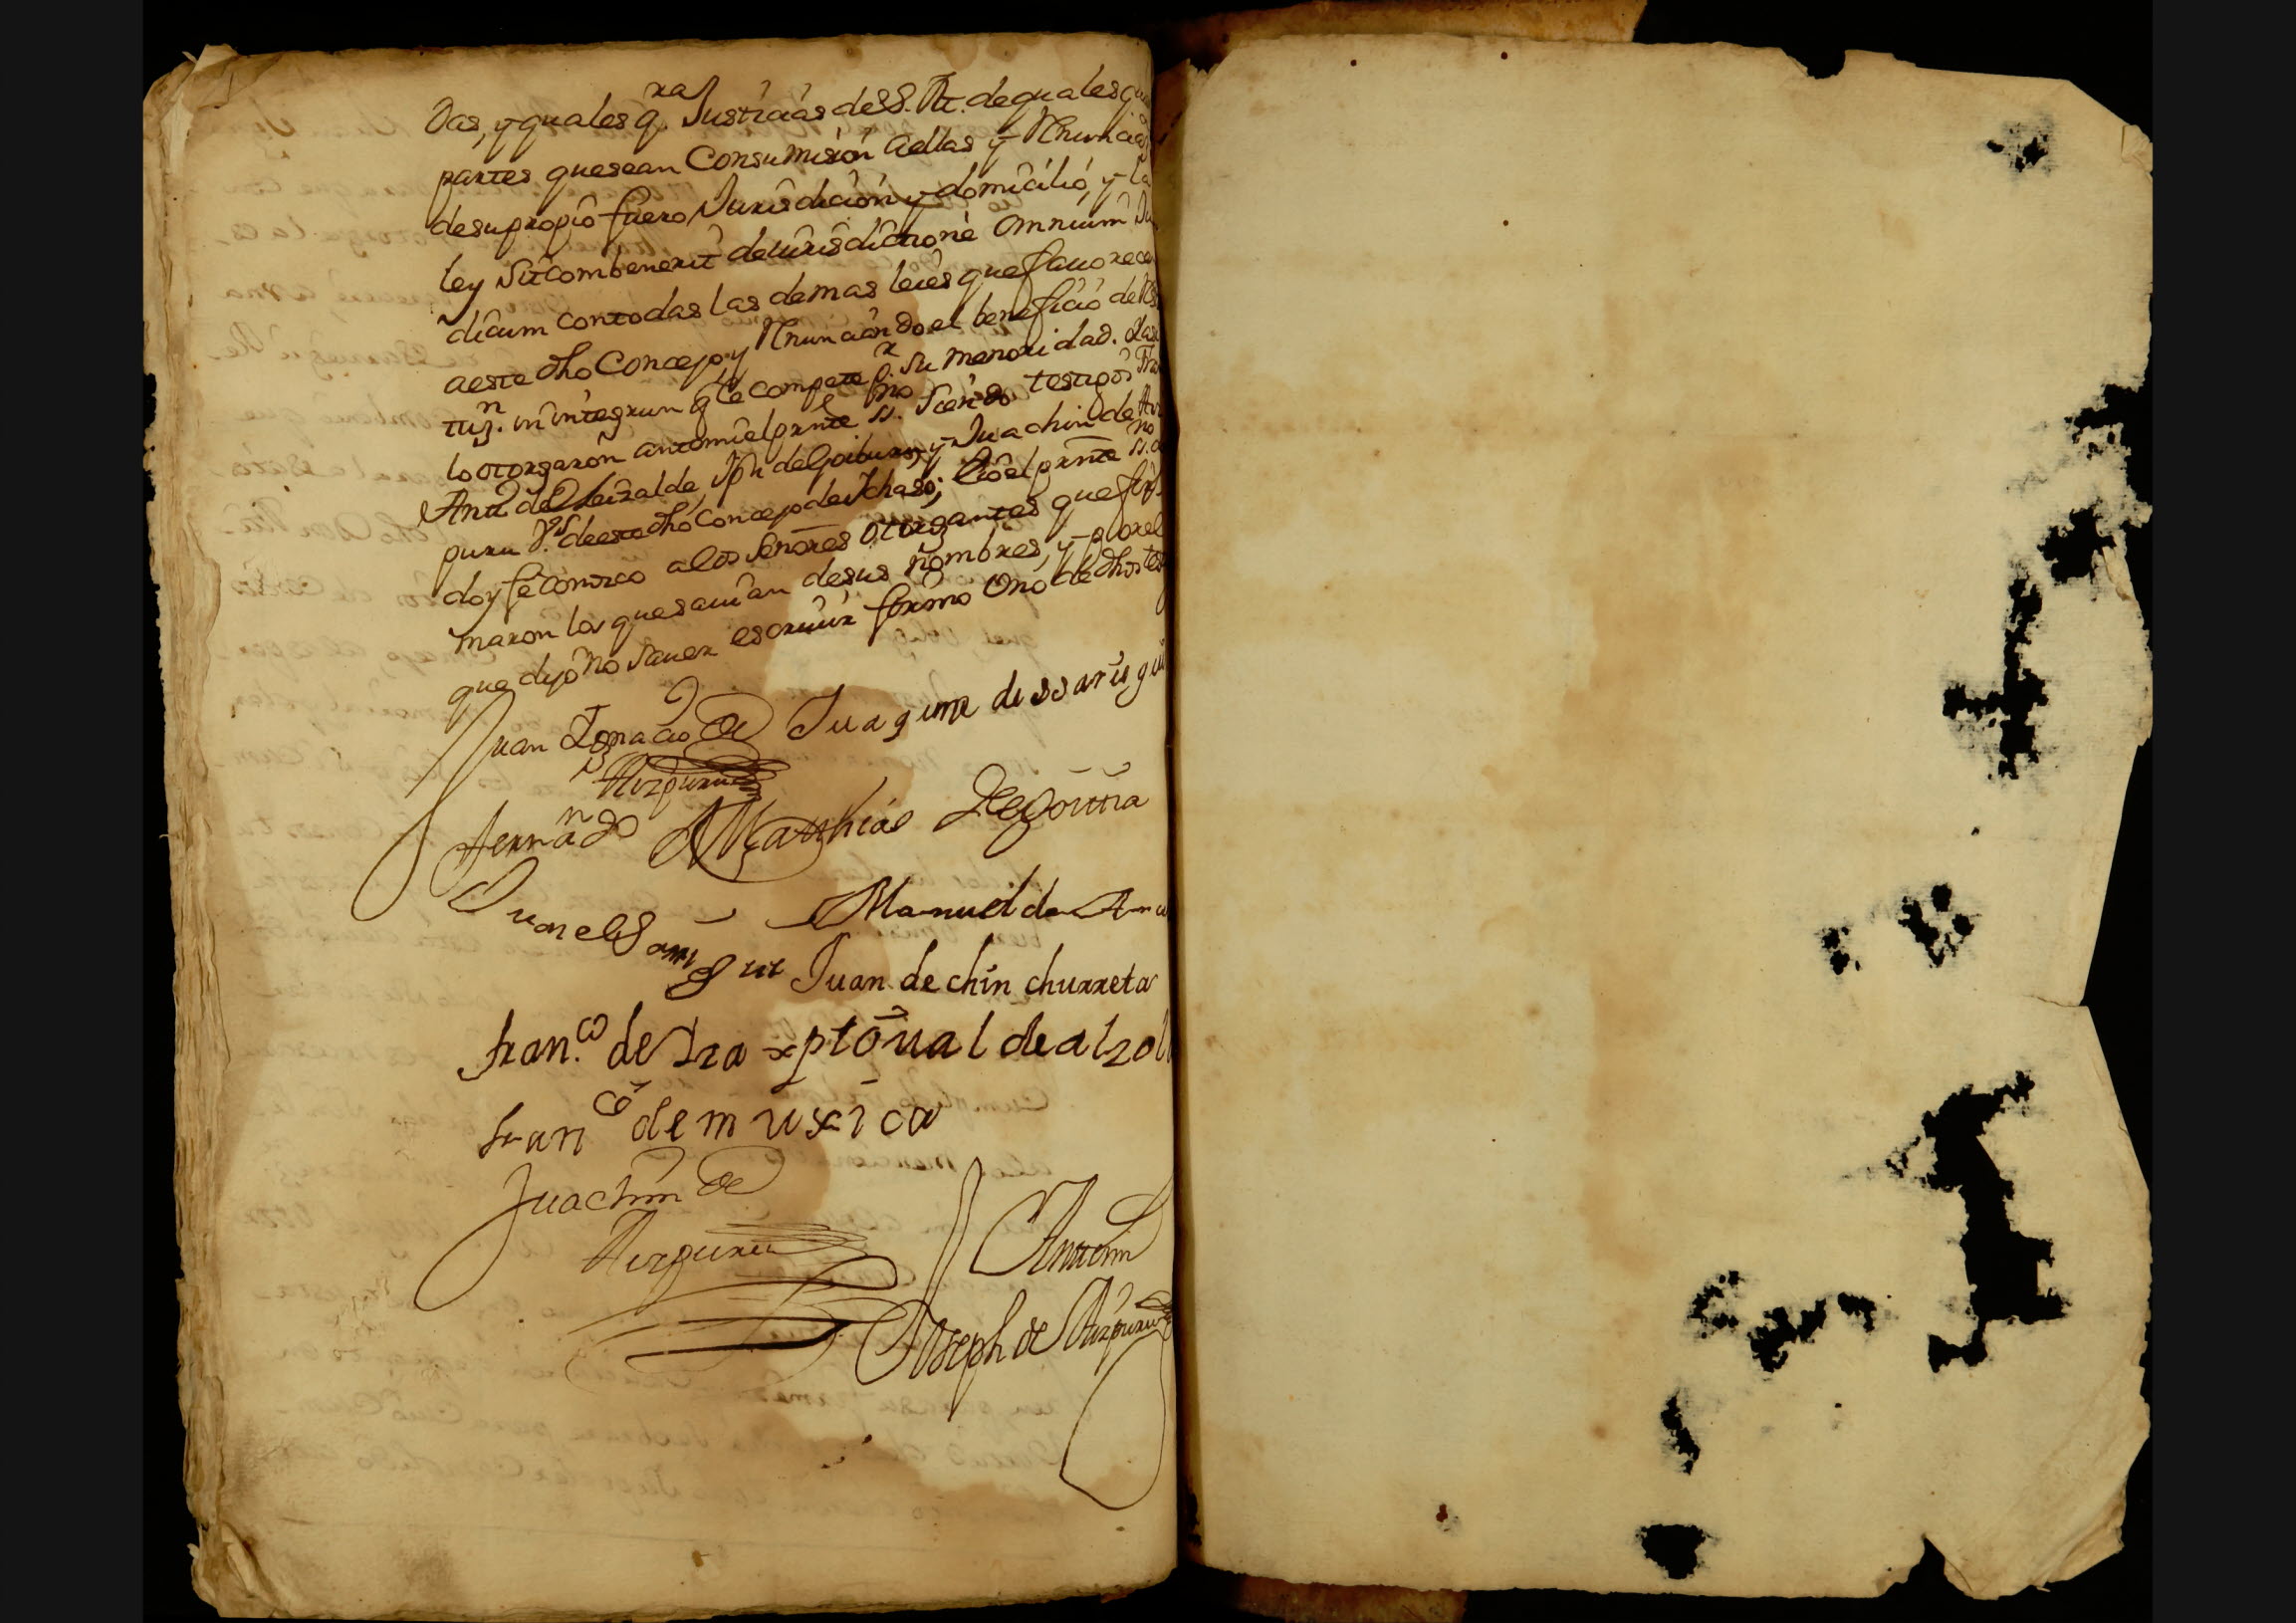 Das, y quales q.ra Justicias de S. M. de quales qu
partes que sean Consumision aellas y Renuncia
desupropio fuero Jurisdicion y domicilio, y la
ley Sitcombenerit dejurisdictione Omnium Ju
dicum contodas las demas leies que fauorecen
aeste dho Concejo y Renunciando el beneficio de Res
tuz.n in integrun q le compete p.r su menoridad.
lo otorgaron antemi el prnte ss.no siendo testigos
Ant.o de Oleizalde, Jph de Goiburu, y Juachin de Aiz
puru V.os deeste dho Concejo de Ichaso; Eio el prnte ss.no
doy fe conozco alos Senores otorgantes que fir
maron los que sauian desus nombres, y por el
que dijo no sauer escriuir firmo Uno de dhos tes
Juan Ignacio de Juaquin dessarasgui
Aizpuru
Fernando Matthias Legoina
Juan elSaransgui Manuel de
Juan de chinchurreta
fran.co de Iza xptoual de alzol
fran.co de muxica
Juachin de
Aizpuru Antemi
Joseph de Aizpuru